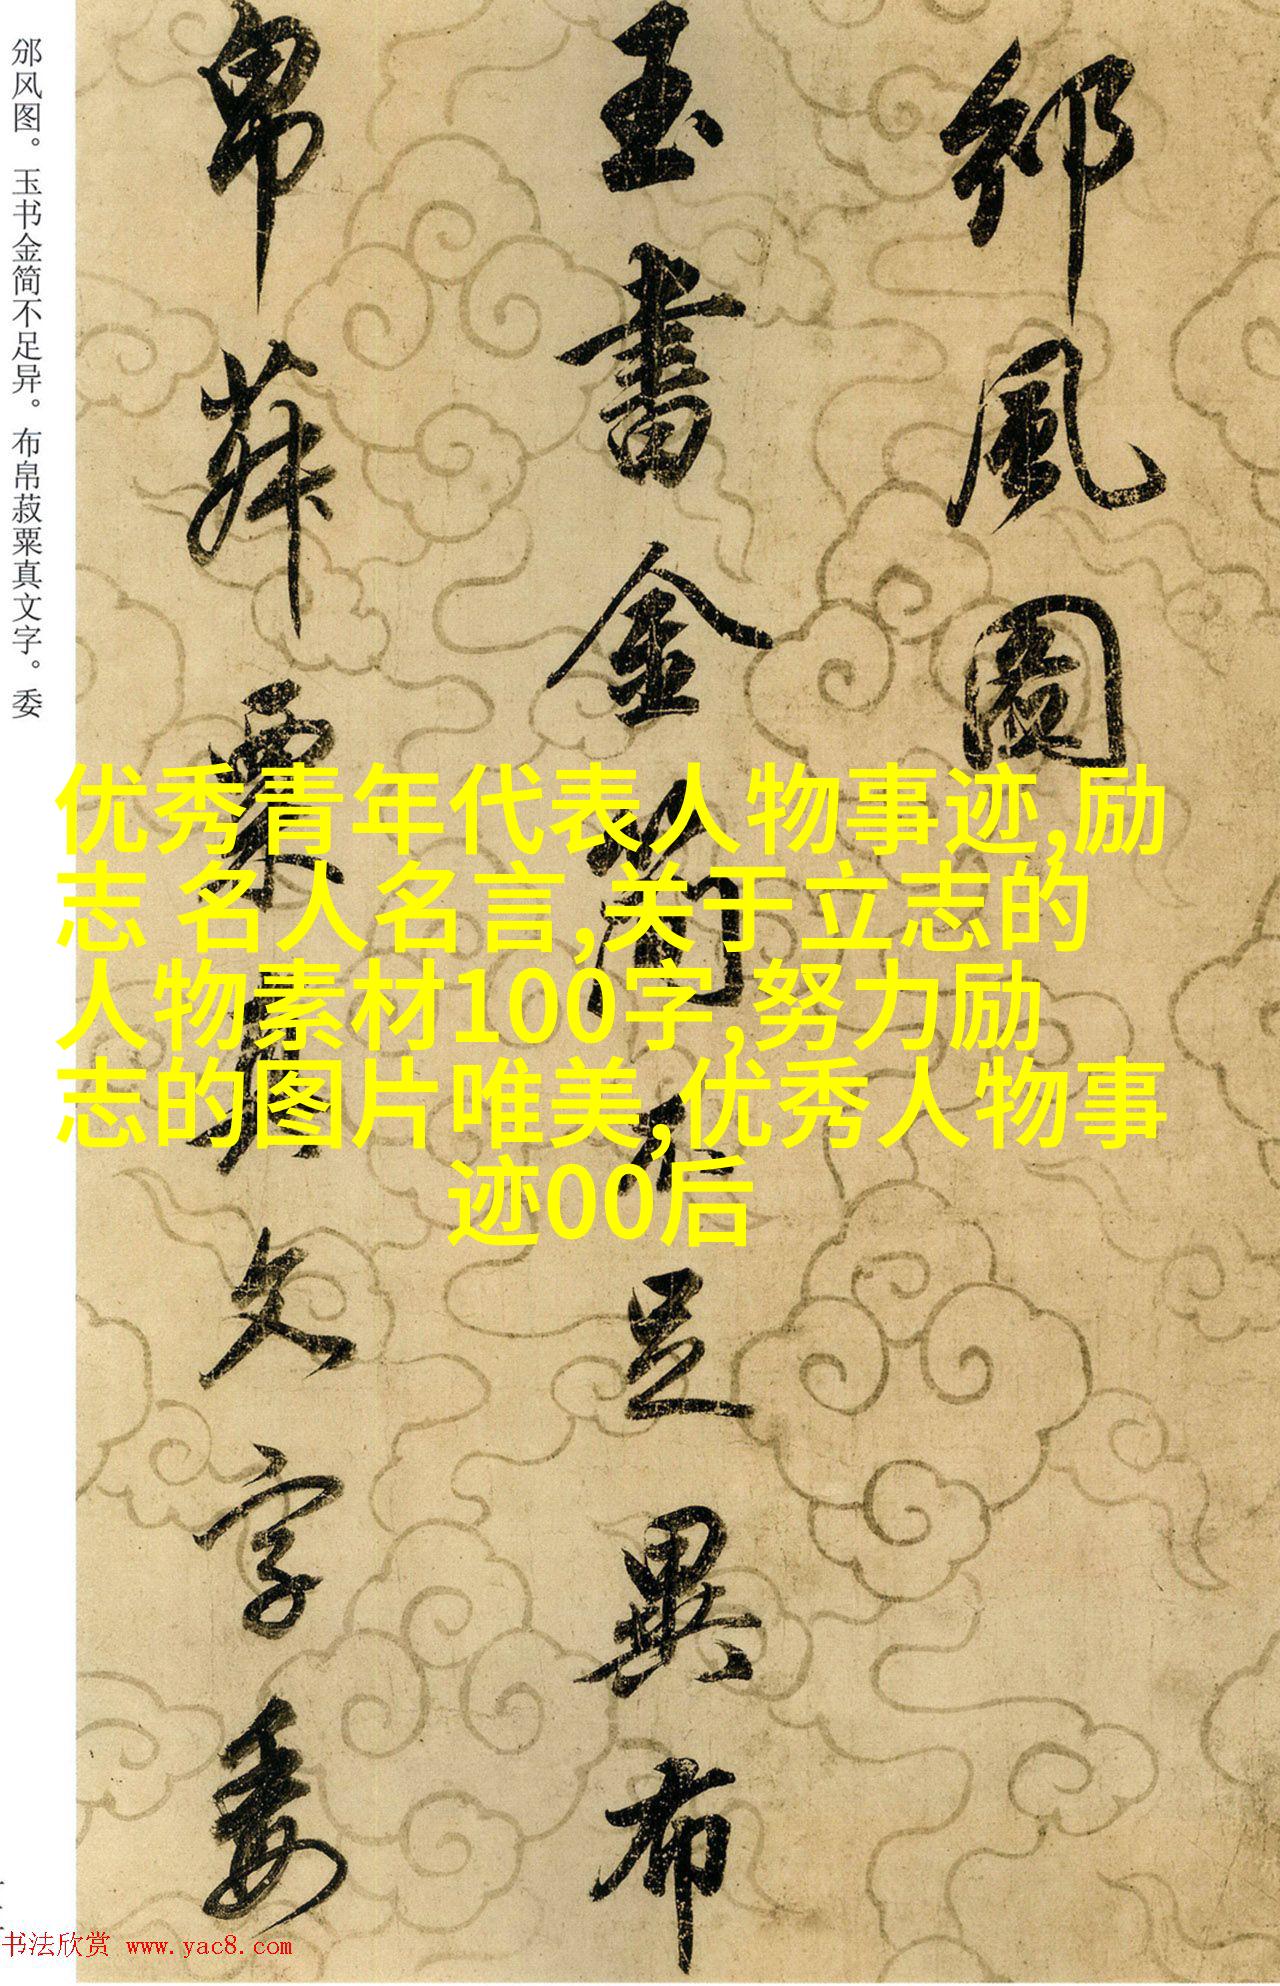 邠風圖
玉書金簡不足異布
帛菽粟真文字委
邠风图。玉书金简不足异。布帛菽粟真文字。委
优秀青年代表人物事迹,励
志 名人名言,关于立志的
人物素材100字,努力励
志的图片唯美,优秀人物事
迹00后
书法欣赏 www.yac8.com